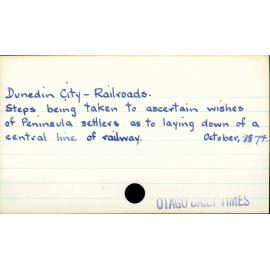 Dunedin City - Railroads.
Steps being taken to ascertain wishes
of Peninsula settlers as to laying down of a
central line of railway. October, 1874.
OTAGO DAILY TIMES